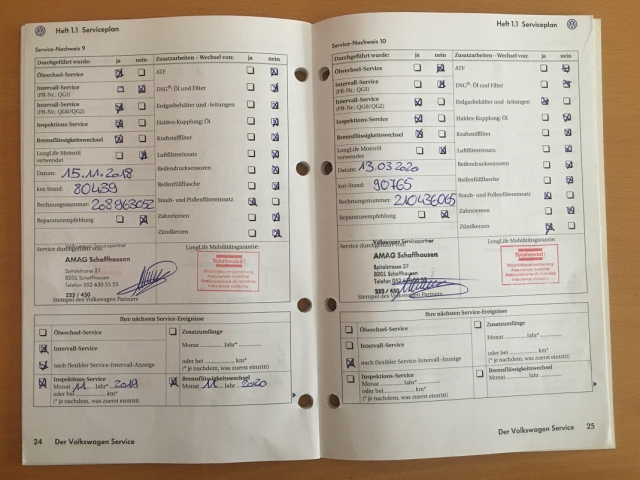 Heft 1.1 Serviceplan
Service-Nachweis 9
Durchgeführt wurde: ja nein Zusatzarbeiten - Wechsel von: ja nein
Ölwechsel-Service ATF
Intervall-Service DSG®: Öl und Filter
(PR-Nr.: QG1)
Intervall-Service Erdgasbehälter und -leitungen
(PR-Nr.: QG0/QG2)
Inspektions-Service Haldex-Kupplung: Öl
Bremsflüssigkeitswechsel Kraftstofffilter
LongLife Motoröl verwendet Luftfiltereinsatz
Datum: 15.11.2018 Reifendrucksensoren
km-Stand: 80439 Reifenfüllflasche
Rechnungsnummer: 208963052 Staub- und Pollenfiltereinsatz
Reparaturempfehlung Zahnriemen
Zündkerzen
Service durchgeführt von: LongLife Mobilitätsgarantie:
Volkswagen Servicepartner
AMAG Schaffhausen
Spitalstrasse 27
8201 Schaffhausen
Telefon 052 630 55 55
233 / 450
Totalmobil!
Mobilitätsversicherung
Assurance mobilité
Assicurazione di mobilità
Insurance mobility
Stempel des Volkswagen Partners
Ihre nächsten Service-Ereignisse
Ölwechsel-Service Zusatzumfänge
Intervall-Service Monat ........ Jahr* ........
nach flexibler Service-Intervall-Anzeige oder bei ........ km*
(* je nachdem, was zuerst eintritt)
Inspektions-Service Bremsflüssigkeitswechsel
Monat 11 Jahr* 2019 Monat 11 Jahr 2020
oder bei ........ km*
(* je nachdem, was zuerst eintritt)
24 Der Volkswagen Service
Heft 1.1 Serviceplan
Service-Nachweis 10
Durchgeführt wurde: ja nein Zusatzarbeiten - Wechsel von: ja nein
Ölwechsel-Service ATF
Intervall-Service DSG®: Öl und Filter
(PR-Nr.: QG1)
Intervall-Service Erdgasbehälter und -leitungen
(PR-Nr.: QG0/QG2)
Inspektions-Service Haldex-Kupplung: Öl
Bremsflüssigkeitswechsel Kraftstofffilter
LongLife Motoröl verwendet Luftfiltereinsatz
Datum: 13.03.2020 Reifendrucksensoren
km-Stand: 90765 Reifenfüllflasche
Rechnungsnummer: 210436065 Staub- und Pollenfiltereinsatz
Reparaturempfehlung Zahnriemen
Zündkerzen
Service durchgeführt von: LongLife Mobilitätsgarantie:
Volkswagen Servicepartner
AMAG Schaffhausen
Spitalstrasse 27
8201 Schaffhausen
Telefon 052 630 55 55
233 / 450
Totalmobil!
Mobilitätsversicherung
Assurance mobilité
Assicurazione mobilità
Insurance mobility
Stempel des Volkswagen Partners
Ihre nächsten Service-Ereignisse
Ölwechsel-Service Zusatzumfänge
Intervall-Service Monat ........ Jahr* ........
nach flexibler Service-Intervall-Anzeige oder bei ........ km*
(* je nachdem, was zuerst eintritt)
Inspektions-Service Bremsflüssigkeitswechsel
Monat ........ Jahr* ........ Monat ........ Jahr ........
oder bei ........ km*
(* je nachdem, was zuerst eintritt)
Der Volkswagen Service 25